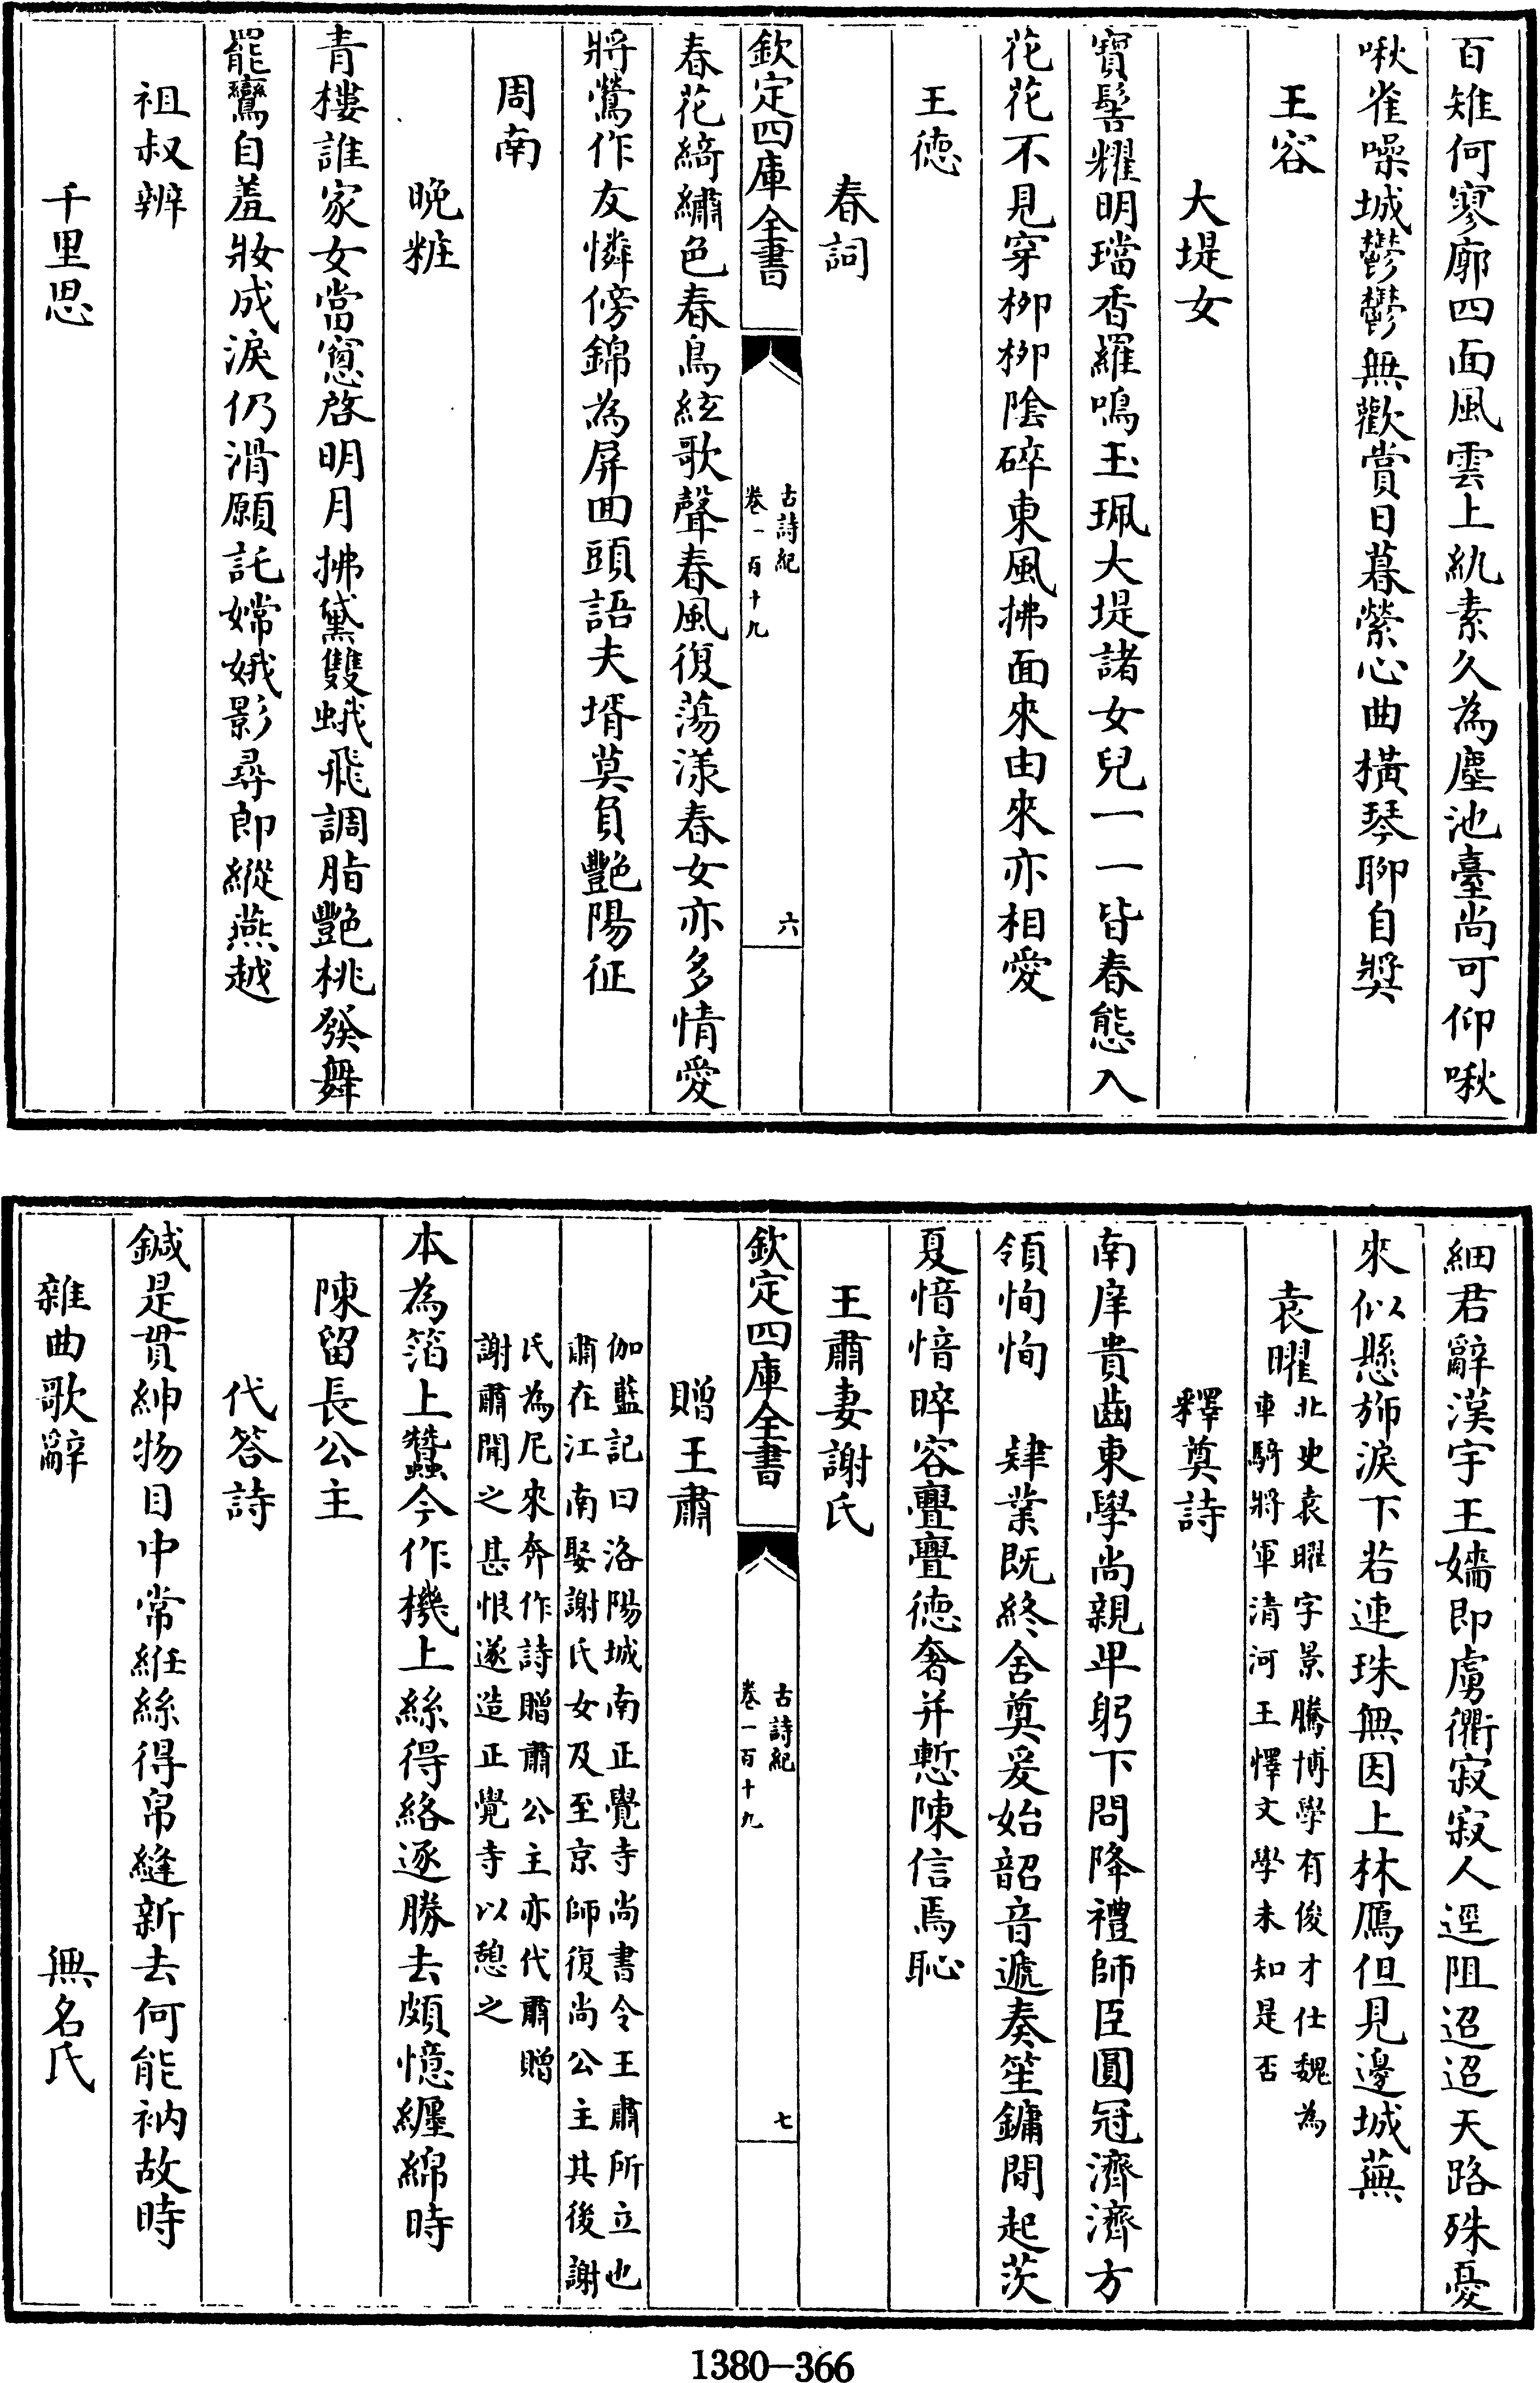 百雉何寥廓四面風雲上紈素久為塵池臺尚可仰啾
啾雀噪城鬱鬱無歡賞日暮縈心曲橫琴聊自奬
王容
大堤女
寳髻耀明璫香羅鳴玉珮大堤諸女兒一一皆春態入
花花不見穿栁栁陰碎東風拂面來由來亦相愛
王徳
春詞
欽定四庫全書
古詩紀
卷一百十九
六
春花綺繡色春鳥絃歌聲春風復蕩漾春女亦多情愛
將鶯作友憐傍錦為屏囬頭語夫壻莫負艷陽征
周南
晩粧
青樓誰家女當窻啓明月拂黛雙蛾飛調脂艷桃發舞
罷鸞自羞妝成淚仍滑願託嫦娥影尋郎縱燕越
祖叔辨
千里思
細君辭漢宇王嬙即虜衢寂寂人逕阻迢迢天路殊憂
來似懸斾淚下若連珠無因上林鴈但見邊城蕪
袁曜
北史袁曜字景騰博學有俊才仕魏為
車騎將軍清河王懌文學未知是否
釋奠詩
南庠貴齒東學尚親卑躬下問降禮師臣圓冠濟濟方
領恂恂 肄業既終舍奠爰始韶音遞奏笙鏞間起茨
夏愔愔晬容亹亹徳奢并慙陳信焉恥
王肅妻謝氏
欽定四庫全書
古詩紀
卷一百十九
七
贈王肅
伽藍記曰洛陽城南正覺寺尚書令王肅所立也
肅在江南娶謝氏女及至京師復尚公主其後謝
氏為尼來奔作詩贈肅公主亦代肅贈
謝肅聞之甚恨遂造正覺寺以憩之
本為箔上蠶今作機上絲得絡逐勝去頗憶纒綿時
陳留長公主
代答詩
鍼是貫紳物目中常絍絲得帛縫新去何能衲故時
雜曲歌辭 無名氏
1380-366